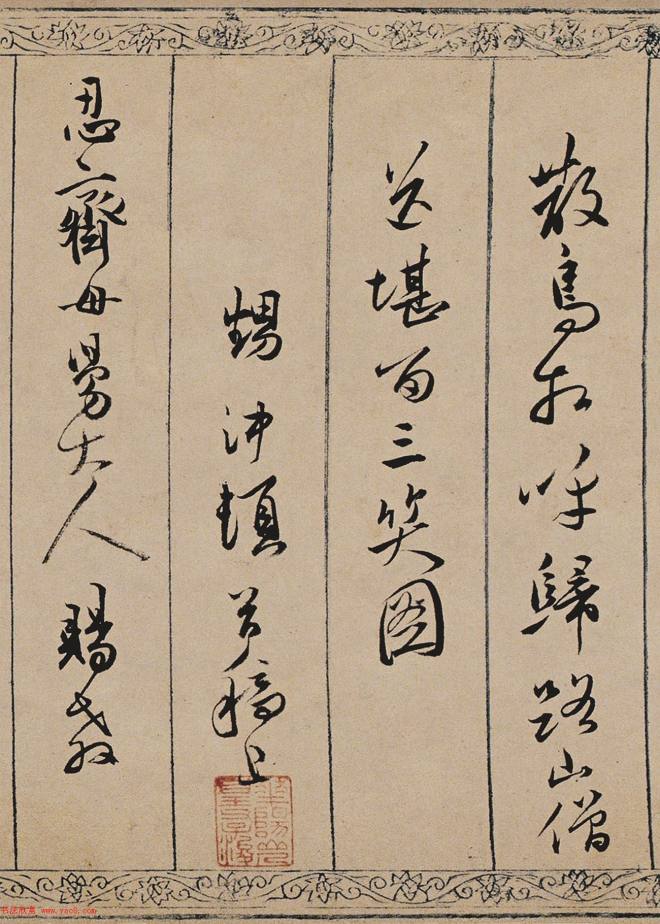 散鳥相呼歸路山僧
堪三笑圖
甥沖頓首稿上
思齋母舅大人賜教
书法欣赏 www.yac8.com